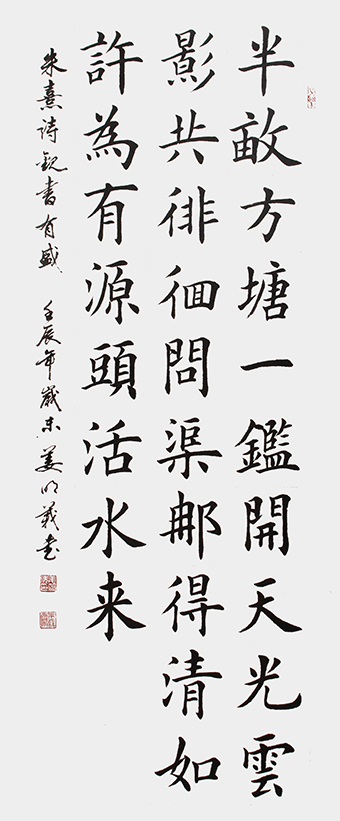 半畝方塘一鑑開天光雲
影共徘徊問渠那得清如
許為有源頭活水来
朱熹詩観書有感 壬辰年歲末姜明義書